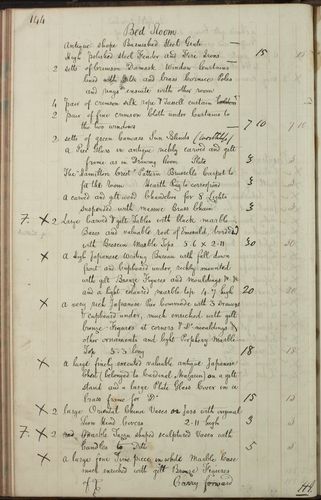 144
Bed Room
Antique shape Burnished Steel Grate —
High polished Steel Fender and Fire Irons — 15 15
2 setts of Crimson Damask Window Curtains
lined with Silk and Brass Cornices Poles
and rings ensuite with other room
4 pair of crimson silk rope & Tassell curtain
2 pair of fine crimson Cloth under Curtains to
the two windows 7 10 7 10
2 setts of green canvass Sun Blinds (Worthless)
a Pier Glass in antique richly carved and gilt
frame as in Drawing Room Plate 8
The Hamilton Crest Pattern Brussells Carpet to
fit the room Hearth Rug to correspond 8
a carved and gilt wood Chandelier for 8 Lights
suspended with massive Brass Chain 3
7. X 2 Large Carved & gilt Tables with black marble
Bases and valuable root of Emerald,
with Breccia Marble Tops 5.6 x 2.11 30 30
X a high Japanese Writing Bureau with fall down
front and Cupboard under, richly mounted
with gilt Bronze Figures and mouldings
and a light coloured marble top 4.7 high 20 20
X a very rich Japanese Pier Commode with 3 Drawers
& cupboard under, much enriched with gilt
bronze Figures at corners & Do mouldings &
other ornaments and light Porphry Marble
Top 5.3 long 18 18
X a large finely executed valuable antique Japanese
Chest (belonged to Cardinal Mazarin) on a gilt
stand and a large Plate Glass Cover on a
Brass frame for Do 15 15
X 2 large Oriental China Vases or Jars with original
Lion Head Covers 2.11 high 3 3
7. X 2 Marble Tazza shaped sculptured Vases with
handles to Ditto 5
X a large fine Time piece in white Marble Case
much enriched with gilt Bronze Figures
of
Carry forward